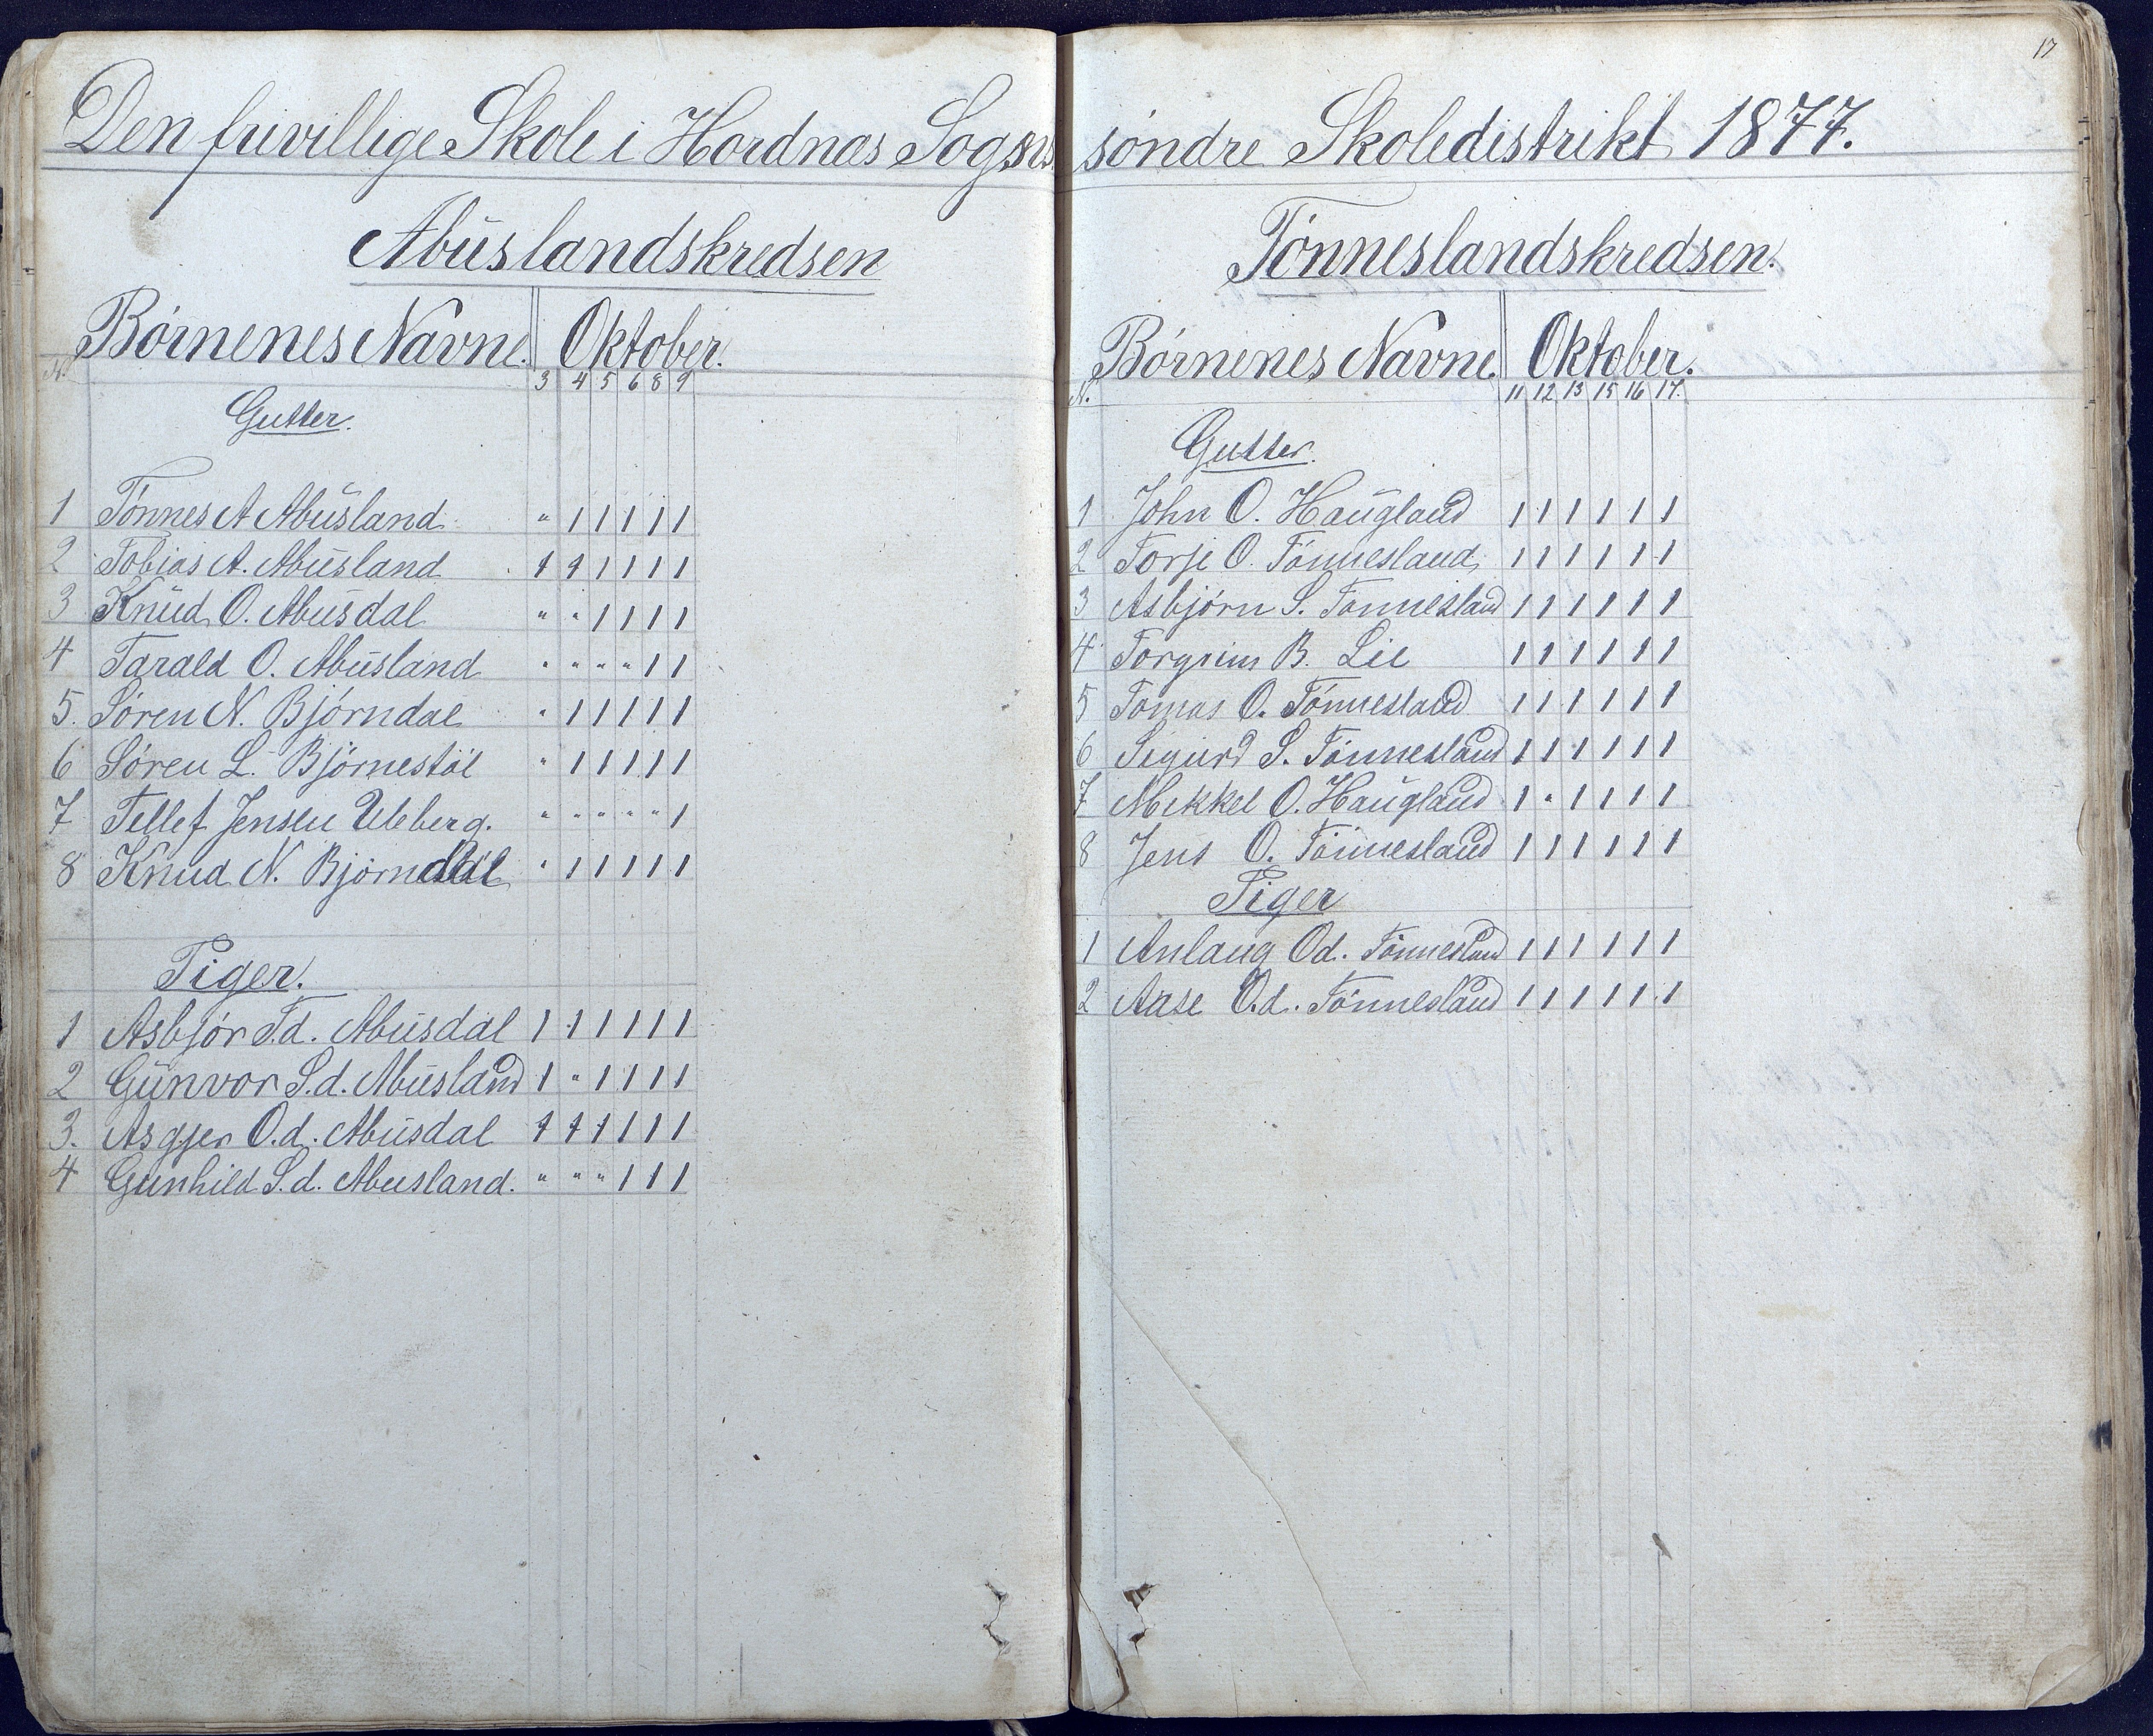 17
Den frivillige Skole i Hordnæs Sogns søndre Skoledistrikt 1877.
Abuslandskredsen
Børnenes Navne. Oktober.
N. 3 4 5 6 8 9
Gutter.
1 Tønnes A Abusland " 1 1 1 1 1
2 Tobias A. Abusland 1 1 1 1 1 1
3 Knud O. Abusdal " " 1 1 1 1
4 Tarald O. Abusland " " " " 1 1
5. Søren N. Bjørndal " 1 1 1 1 1
6 Søren L. Bjørnestøl " 1 1 1 1 1
7 Tellef Jensen Uleberg. " " " " " 1
8 Knud N. Bjørndal " 1 1 1 1 1
Piger.
1 Asbjør T.d. Abusdal 1 1 1 1 1 1
2 Gunvor S.d. Abusland 1 " 1 1 1 1
3. Asgjer O.d. Abusdal 1 1 1 1 1 1
4 Gunhild S.d. Abusland. " " " 1 1 1
Tønneslandskredsen.
Børnenes Navne. Oktober.
N. 11 12 13 15 16 17.
Gutter.
1 John O. Haugland 1 1 1 1 1 1
2 Torje O. Tønnesland 1 1 1 1 1 1
3 Asbjørn S. Tønnesland 1 1 1 1 1 1
4 Torgrim B. Lie 1 1 1 1 1 1
5 Tomas O. Tønnesland 1 1 1 1 1 1
6 Sigurd S. Tønnesland 1 1 1 1 1 1
7 Mikkel O. Haugland 1 " 1 1 1 1
8 Jens O. Tønnesland 1 1 1 1 1 1
Piger
1 Anlaug Od. Tønnesland 1 1 1 1 1 1
2 Aase O.d. Tønnesland 1 1 1 1 1 1